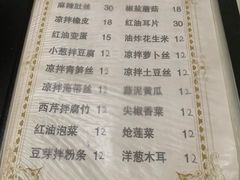 麻辣肚丝 30 椒盐蘑菇 18
凉拌橡皮 18 红油耳片 30
红油变蛋 15 油炸花生米 12
小葱拌豆腐 12 凉拌萝卜丝 12
凉拌青笋丝 12 凉拌土豆丝 12
凉拌海带丝 12 藤泥黄瓜 12
西芹拌腐竹 12 尖椒香菜 12
红油泡菜 12 炝莲菜 12
豆芽拌粉条 12 洋葱木耳 12